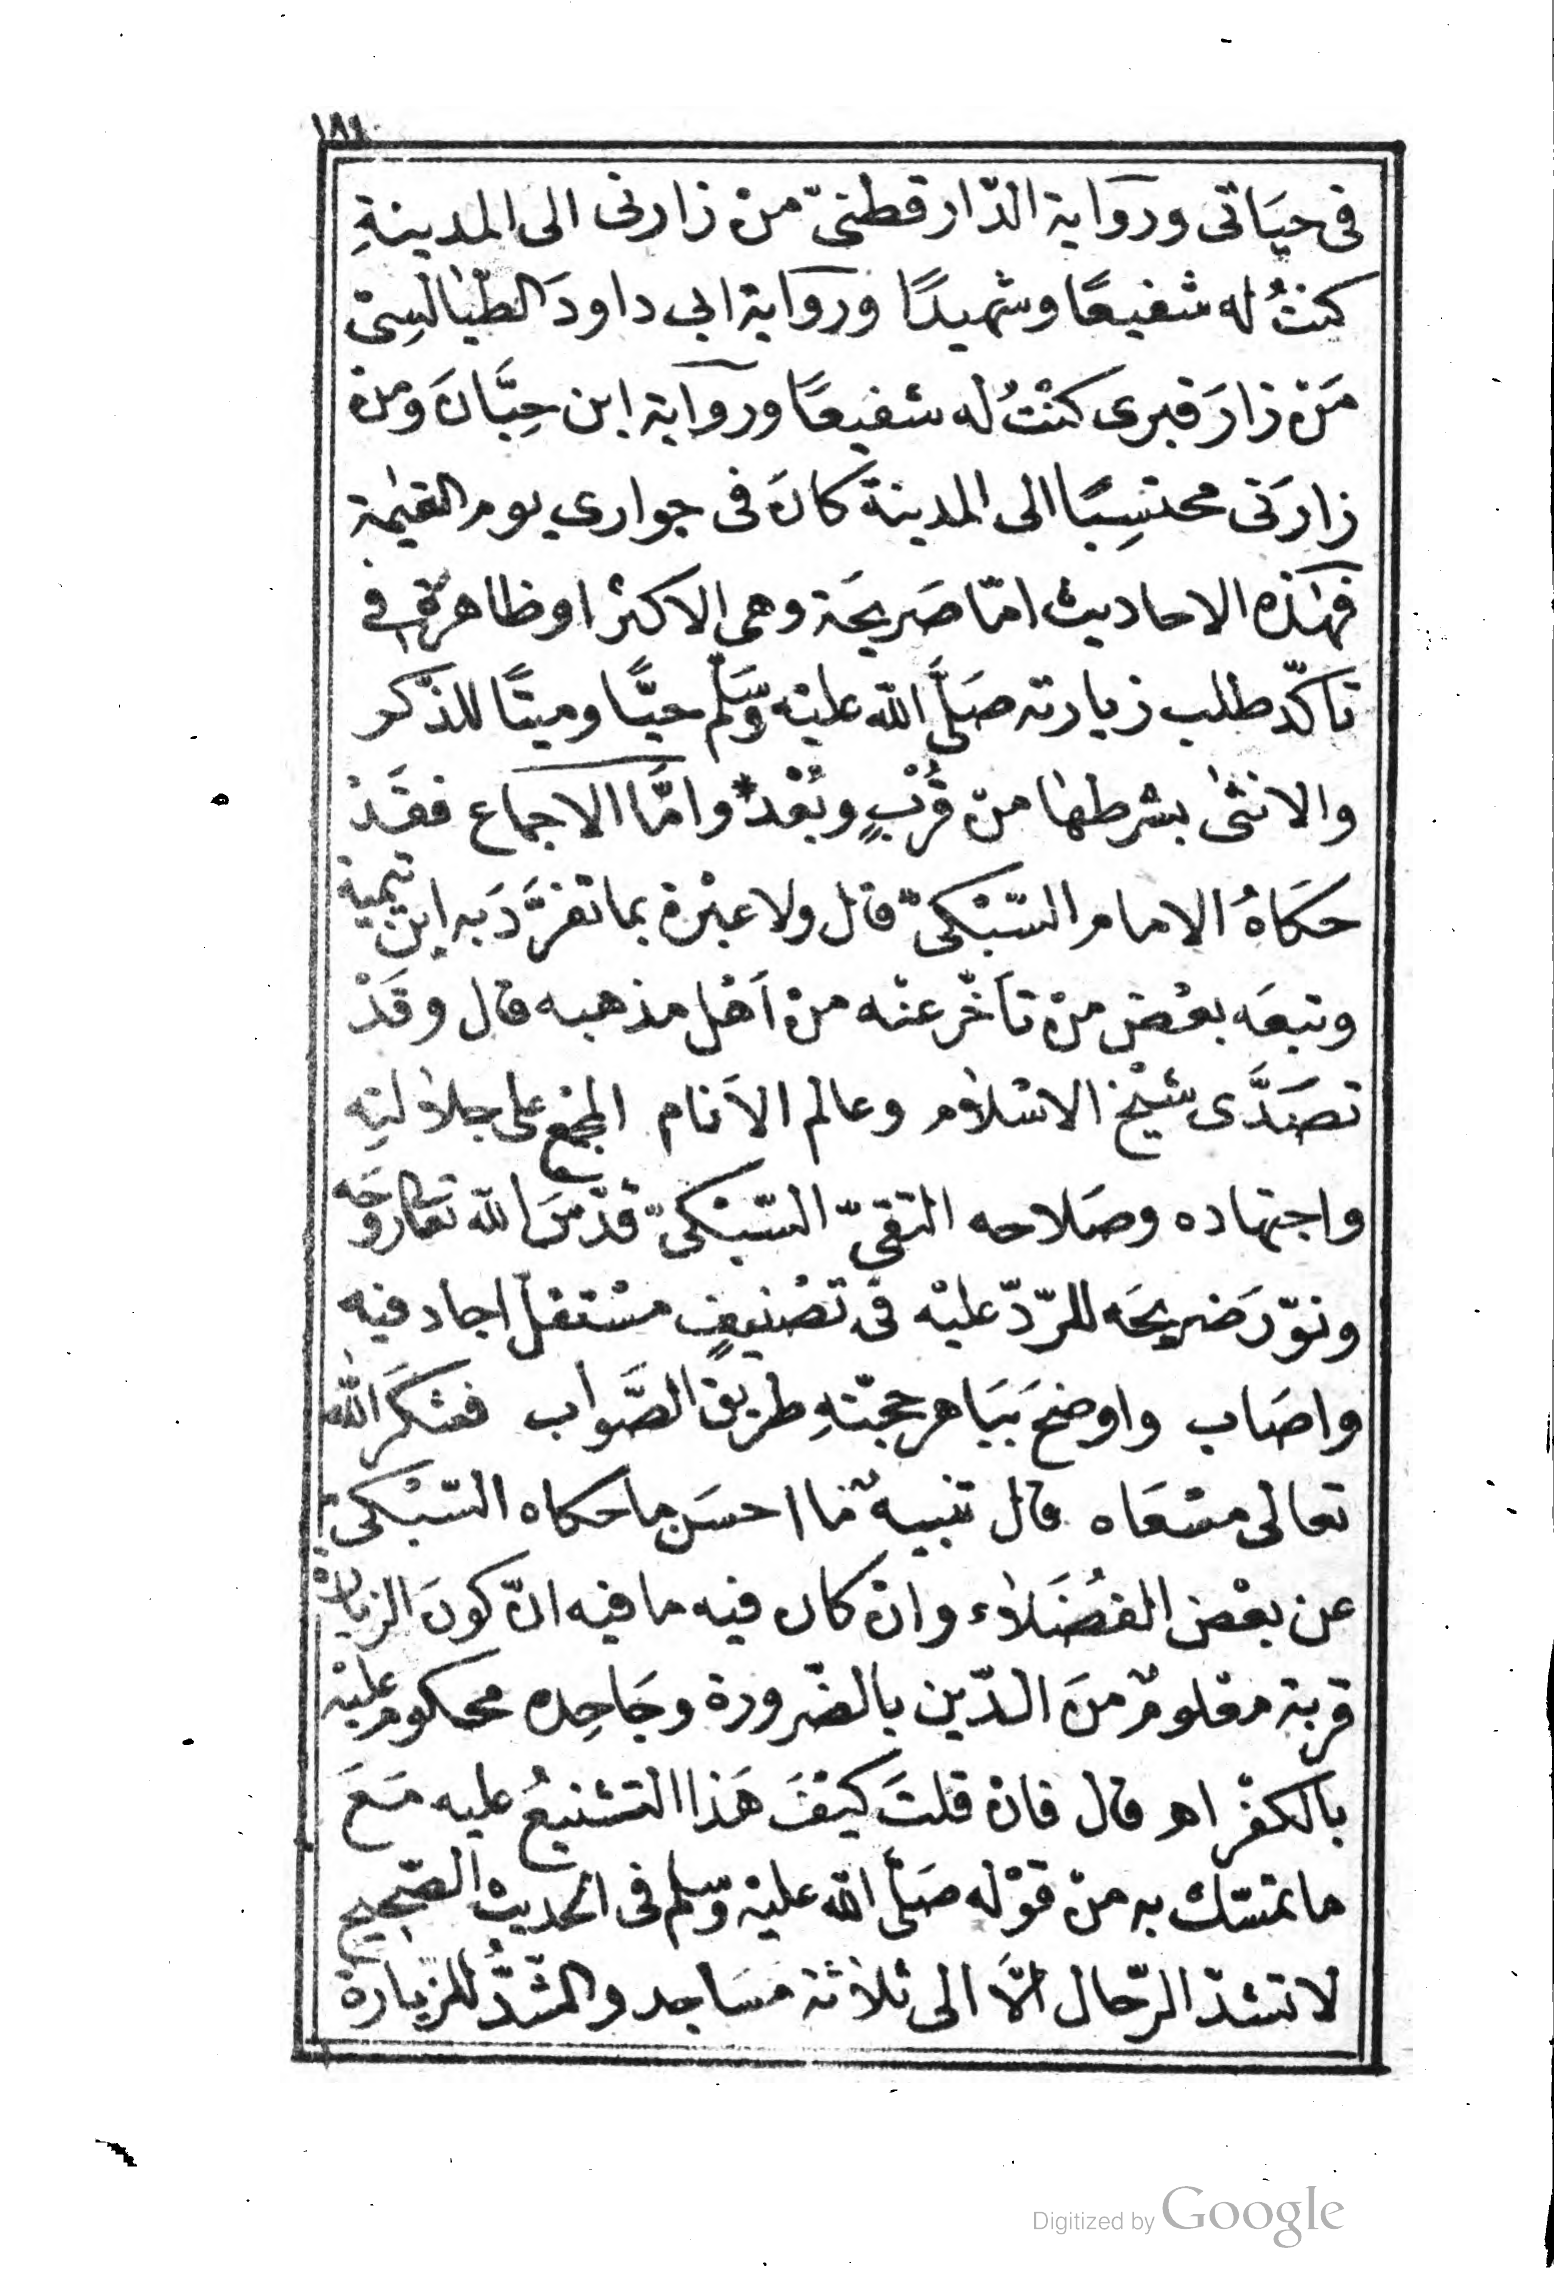 ١٨٤
فى حيَاتى ورواية الدّارقطنىّ منْ زارنى الى المدينةِ
كنتُ له شفيعًا وشهيدًا ورواية ابى داودَ الطّيٰالسِىّ
مَنْ زارَ قبرى كنْتُ له شفيعًا ورواية ابن حِبَّانَ ومنْ
زارَنى محتسِبًا الى المدينة كانَ فى جوارى يوم القيٰمة
فهٰذه الاحاديث امّا صَريحَة وهى الاكثر او ظاهرة فى
تأكّد طلب زيارته صَلَّى اللّه عليْه وسَلّم حيًّا وميتًا للذّكر
والانثىٰ بشرطها منْ قُرْبٍ وبُعْدٍ * وامَّا الاجماع فقَدْ
حكَاهُ الامام السّبْكىّ قال ولا عبْرة بما تفرَّدَ به ابن تيمية
وتبعَه بعْض منْ تأخّر عنْه منْ اَهْل مذهبه قال وقَدْ
تصَدَّى شيْخ الاسْلام وعالم الاَنام المجمع على جلالته
واجتهاده وصَلاحه التقىّ السّبْكىّ قدّسَ اللّه تعالى روحَه
ونوّرَ ضريحَه للرّدّ عليْه فى تصْنيفٍ مسْتقلّ اجاد فيه
واصَاب واوضحَ ببَاهر حجّتهِ طريق الصَّواب فشكَرَ اللّٰه
تعالى مسْعَاه قال تنبيهٌ ما احسَن ما حكاه السّبْكىّ
عن بعْض الفضَلاء وانْ كان فيه ما فيه انّ كونَ الزيارة
قربة معْلومٌ منَ الدّين بالضّرورة وجَاحِده محكوم عليْه
بالكفْر اهـ قال فانْ قلتَ كيْفَ هَذا التشنيعُ عليه مَعَ
ما تمسّك به منْ قوْله صَلَّى اللّه عليْه وسّلم فى الحديث الصّحيح
لا تشدّ الرّحال الَّا الى ثلاثة مَسَاجد والشّدُّ للزيارة
Digitized by Google